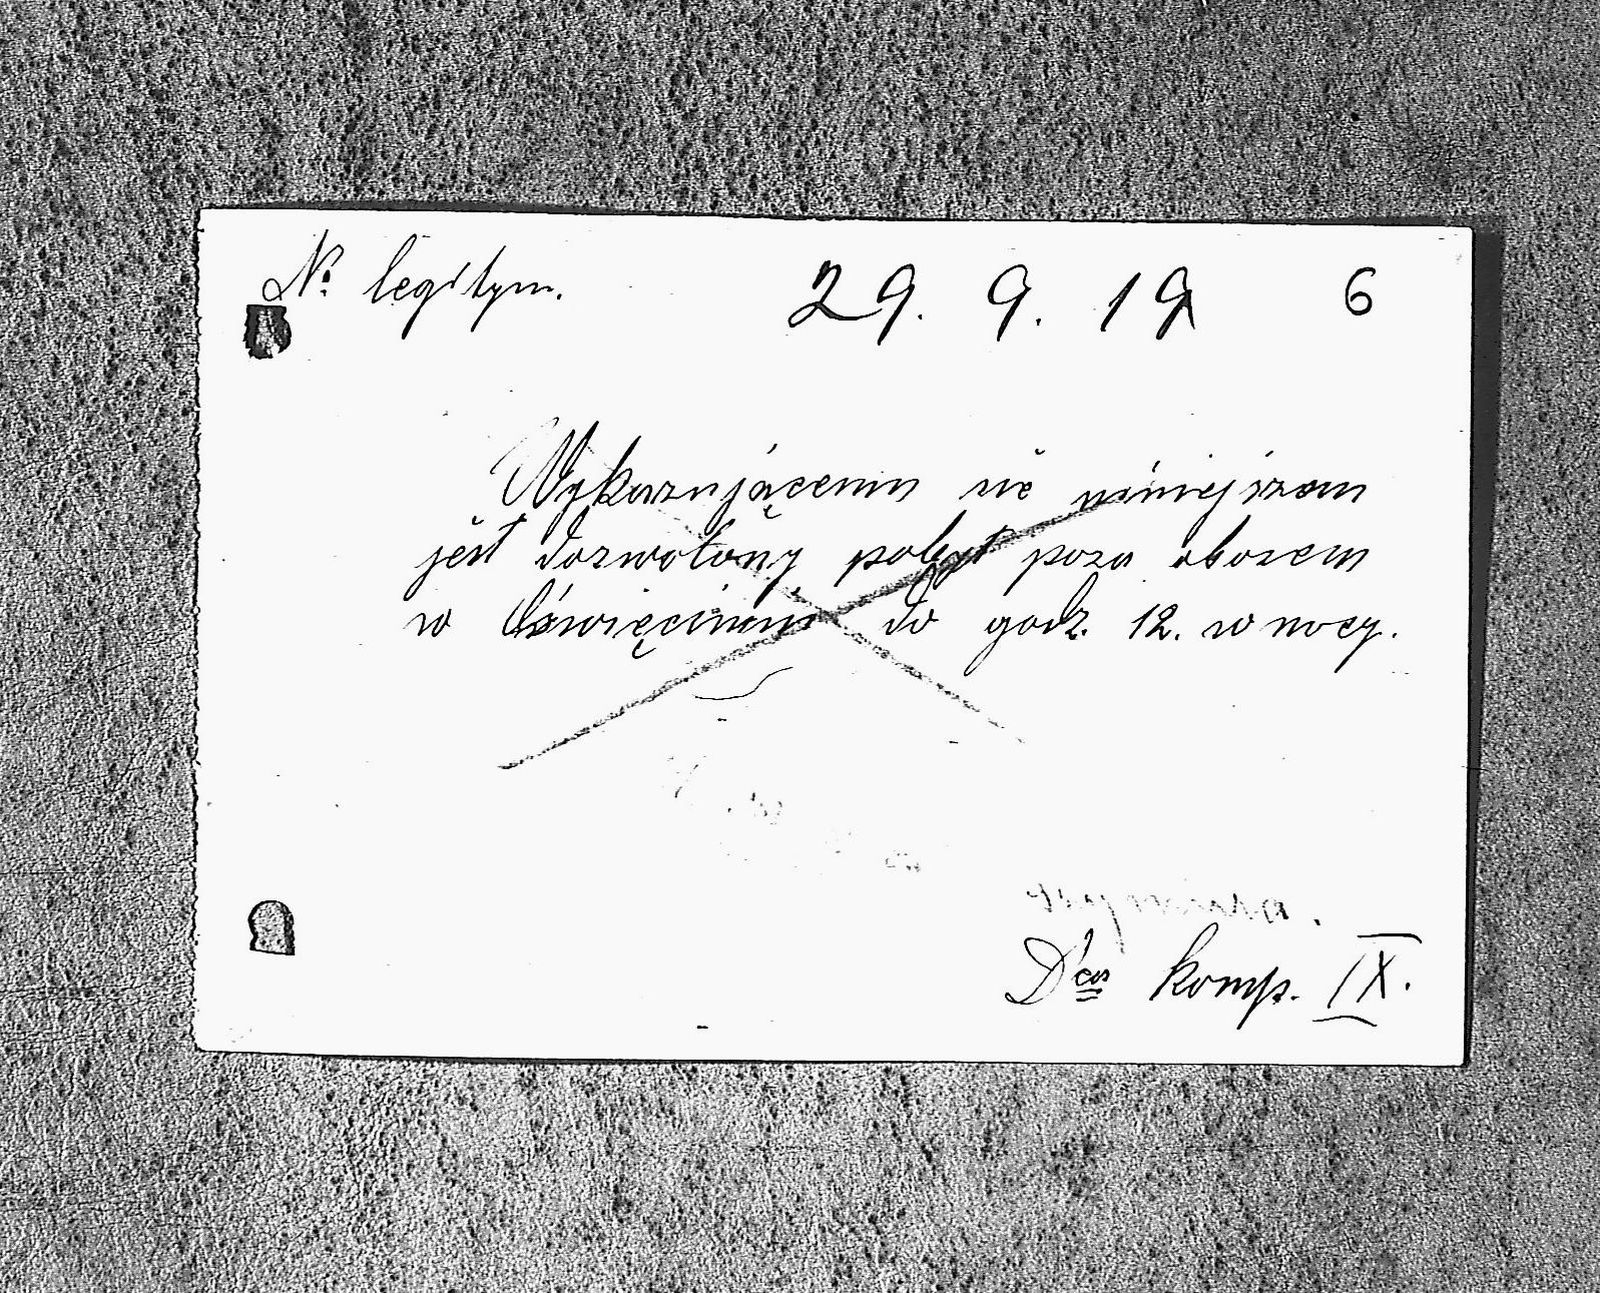 Nº legitym. 29. 9. 19 6
Wykazującemu się niniejszem
jest dozwolony pobyt poza obozem
w Oświęcimiu do godz. 12. w nocy.
Dca komp. IX.